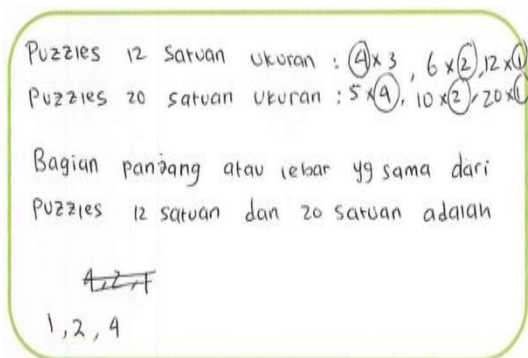 Puzzles 12 satuan ukuran : 4 x 3 , 6 x 2, 12 x 1
Puzzles 20 satuan ukuran : 5 x 4, 10 x 2, 20 x 1
Bagian panjang atau lebar yg sama dari
Puzzles 12 satuan dan 20 satuan adalah
4, 2, 1
1, 2, 4